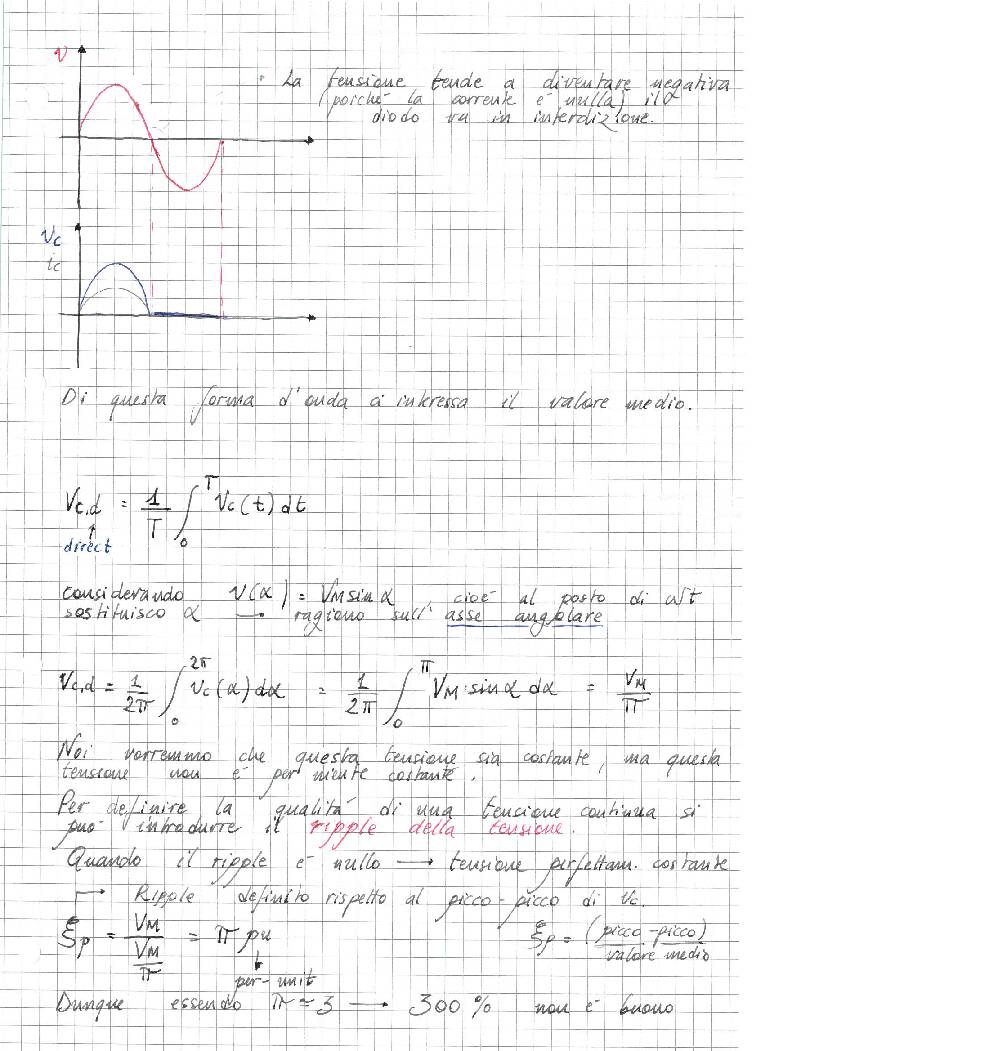 v
· La tensione tende a diventare negativa
(poiché la corrente è nulla) il
diodo va in interdizione.
Vc
ic
Di questa forma d'onda ci interessa il valore medio.
Vc,d = 1/T ∫₀ᵀ Vc(t) dt
↑
direct
considerando v(α) = VM sin α cioè al posto di ωt
sostituisco α → ragiono sull'asse angolare
Vc,d = 1/2π ∫₀^2π vc(α) dα = 1/2π ∫₀^π VM · sin α dα = VM/π
Noi vorremmo che questa tensione sia costante, ma questa
tensione non è per niente costante.
Per definire la qualità di una tensione continua si
può introdurre il ripple della tensione.
Quando il ripple è nullo → tensione perfettam. costante
→ Ripple definito rispetto al picco-picco di Vc.
ξp = VM/(VM/π) = π pu
ξp = (picco-picco)/valore medio
per-unit
Dunque essendo π ≃ 3 → 300 % non è buono